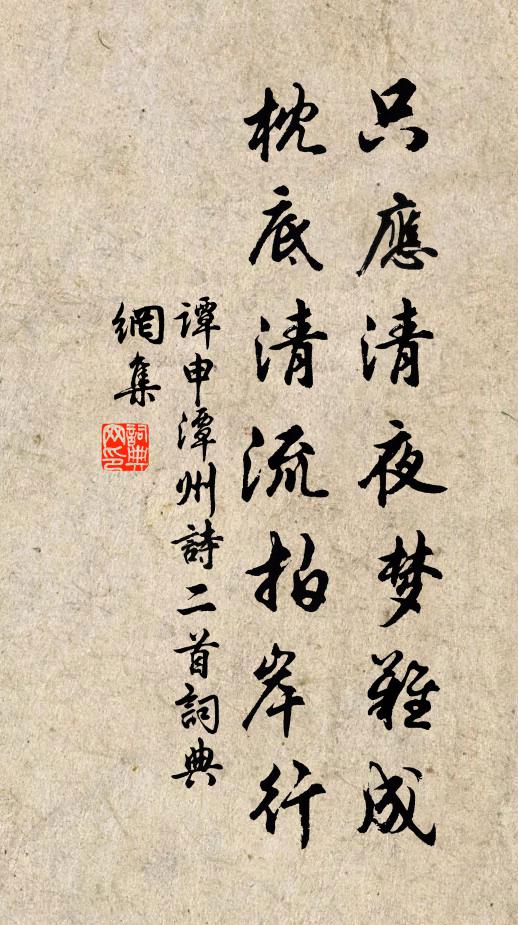 只應清夜梦難成
枕底清流拍岸行
譚申潭州詩二首詞典
網集
詞典
网印